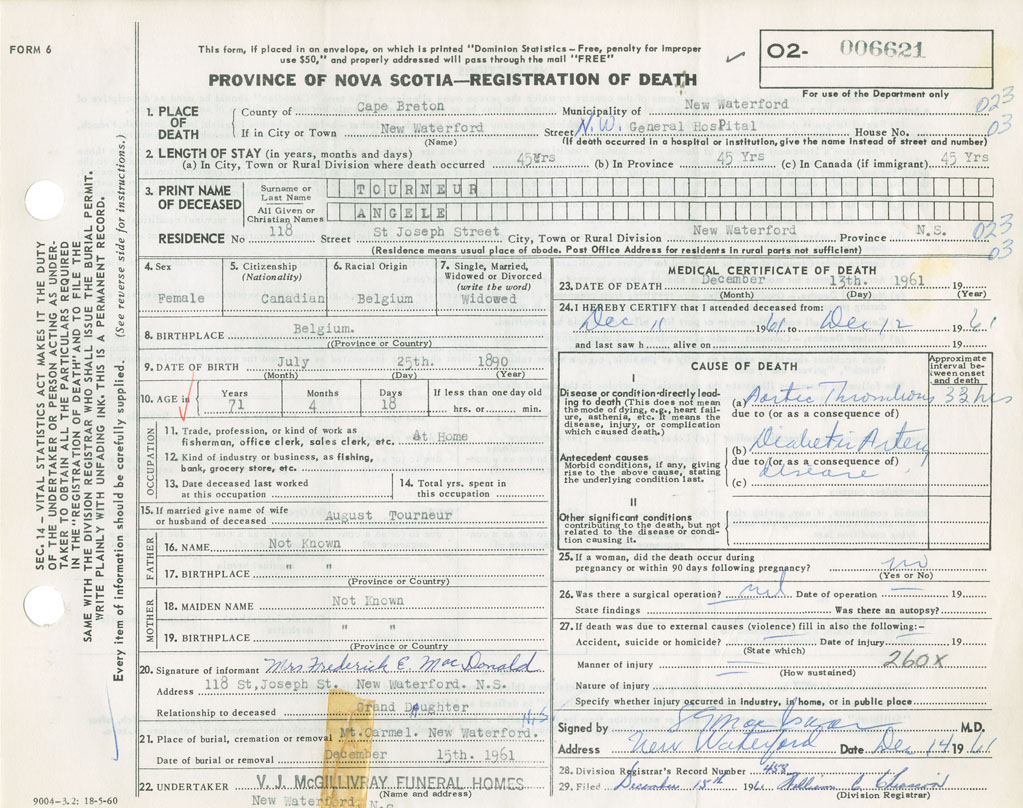 FORM 6
This form, if placed in an envelope, on which is printed "Dominion Statistics – Free, penalty for improper
use $50," and properly addressed will pass through the mail "FREE"
PROVINCE OF NOVA SCOTIA—REGISTRATION OF DEATH
02- 006621
For use of the Department only
023
03
1. PLACE OF DEATH
County of Cape Breton Municipality of New Waterford
If in City or Town New Waterford Street N.W. General Hospital House No.
(Name) (If death occurred in a hospital or institution, give the name instead of street and number)
2. LENGTH OF STAY (in years, months and days)
(a) In City, Town or Rural Division where death occurred 45Yrs (b) In Province 45 Yrs (c) In Canada (if immigrant) 45 Yrs
3. PRINT NAME OF DECEASED
Surname or Last Name TOURNEUR
All Given or Christian Names ANGELE
RESIDENCE No 118 Street St Joseph Street City, Town or Rural Division New Waterford Province N.S.
(Residence means usual place of abode. Post Office Address for residents in rural parts not sufficient)
023
03
4. Sex Female
5. Citizenship (Nationality) Canadian
6. Racial Origin Belgium
7. Single, Married, Widowed or Divorced (write the word) Widowed
8. BIRTHPLACE Belgium.
(Province or County)
9. DATE OF BIRTH July 25th. 1890
(Month) (Day) (Year)
10. AGE in Years 71 Months 4 Days 18 If less than one day old hrs. or min.
OCCUPATION
11. Trade, profession, or kind of work as
fisherman, office clerk, sales clerk, etc. At Home
12. Kind of industry or business, as fishing,
bank, grocery store, etc.
13. Date deceased last worked
at this occupation
14. Total yrs. spent in
this occupation
15. If married give name of wife
or husband of deceased August Tourneur
FATHER
16. NAME Not Known
17. BIRTHPLACE " "
(Province or Country)
MOTHER
18. MAIDEN NAME Not Known
19. BIRTHPLACE " "
(Province or Country
20. Signature of informant Mrs Frederick E. MacDonald
Address 118 St,Joseph St. New Waterford. N.S.
Relationship to deceased Grand Daughter
N.S.
21. Place of burial, cremation or removal Mt.Carmel. New Waterford.
Date of burial or removal December 15th. 1961
22. UNDERTAKER V. J. McGILLIVRAY FUNERAL HOMES
(Name and address)
New Waterford. N.S
9004-3.2: 18-5-60
MEDICAL CERTIFICATE OF DEATH
23. DATE OF DEATH December 13th. 1961 19
(Month) (Day) (Year)
24. I HEREBY CERTIFY that I attended deceased from:
Dec 11 1961 to Dec 12 1961
and last saw h alive on 19
CAUSE OF DEATH
Approximate interval between onset and death
I
Disease or condition directly leading to death (This does not mean the mode of dying, e.g., heart failure, asthenia, etc. It means the disease, injury, or complication which caused death.)
(a) Aortic Thrombosis 33 hrs
due to (or as a consequence of)
Antecedent causes
Morbid conditions, if any, giving rise to the above cause, stating the underlying condition last.
(b) Diabetic Artery
due to (or as a consequence of)
(c) disease
II
Other significant conditions
contributing to the death, but not
related to the disease or condition causing it.
25. If a woman, did the death occur during
pregnancy or within 90 days following pregnancy? no
(Yes or No)
26. Was there a surgical operation? nil Date of operation — 19
State findings Was there an autopsy?
27. If death was due to external causes (violence) fill in also the following:–
Accident, suicide or homicide? Date of injury 19
(State which)
Manner of injury 260X
(How sustained)
Nature of injury
Specify whether injury occurred in industry, in home, or in public place
Signed by M.D.
Address New Waterford Date Dec 14 1961
28. Division Registrar's Record Number 458
29. Filed December 15th 1961 William C
(Division Registrar)
SEC. 14 – VITAL STATISTICS ACT MAKES IT THE DUTY
OF THE UNDERTAKER OR PERSON ACTING AS UNDER-
TAKER TO OBTAIN ALL THE PARTICULARS REQUIRED
IN THE "REGISTRATION OF DEATH" AND TO FILE THE
SAME WITH THE DIVISION REGISTRAR WHO SHALL ISSUE THE BURIAL PERMIT.
WRITE PLAINLY WITH UNFADING INK. THIS IS A PERMANENT RECORD.
Every item of information should be carefully supplied. (See reverse side for instructions.)